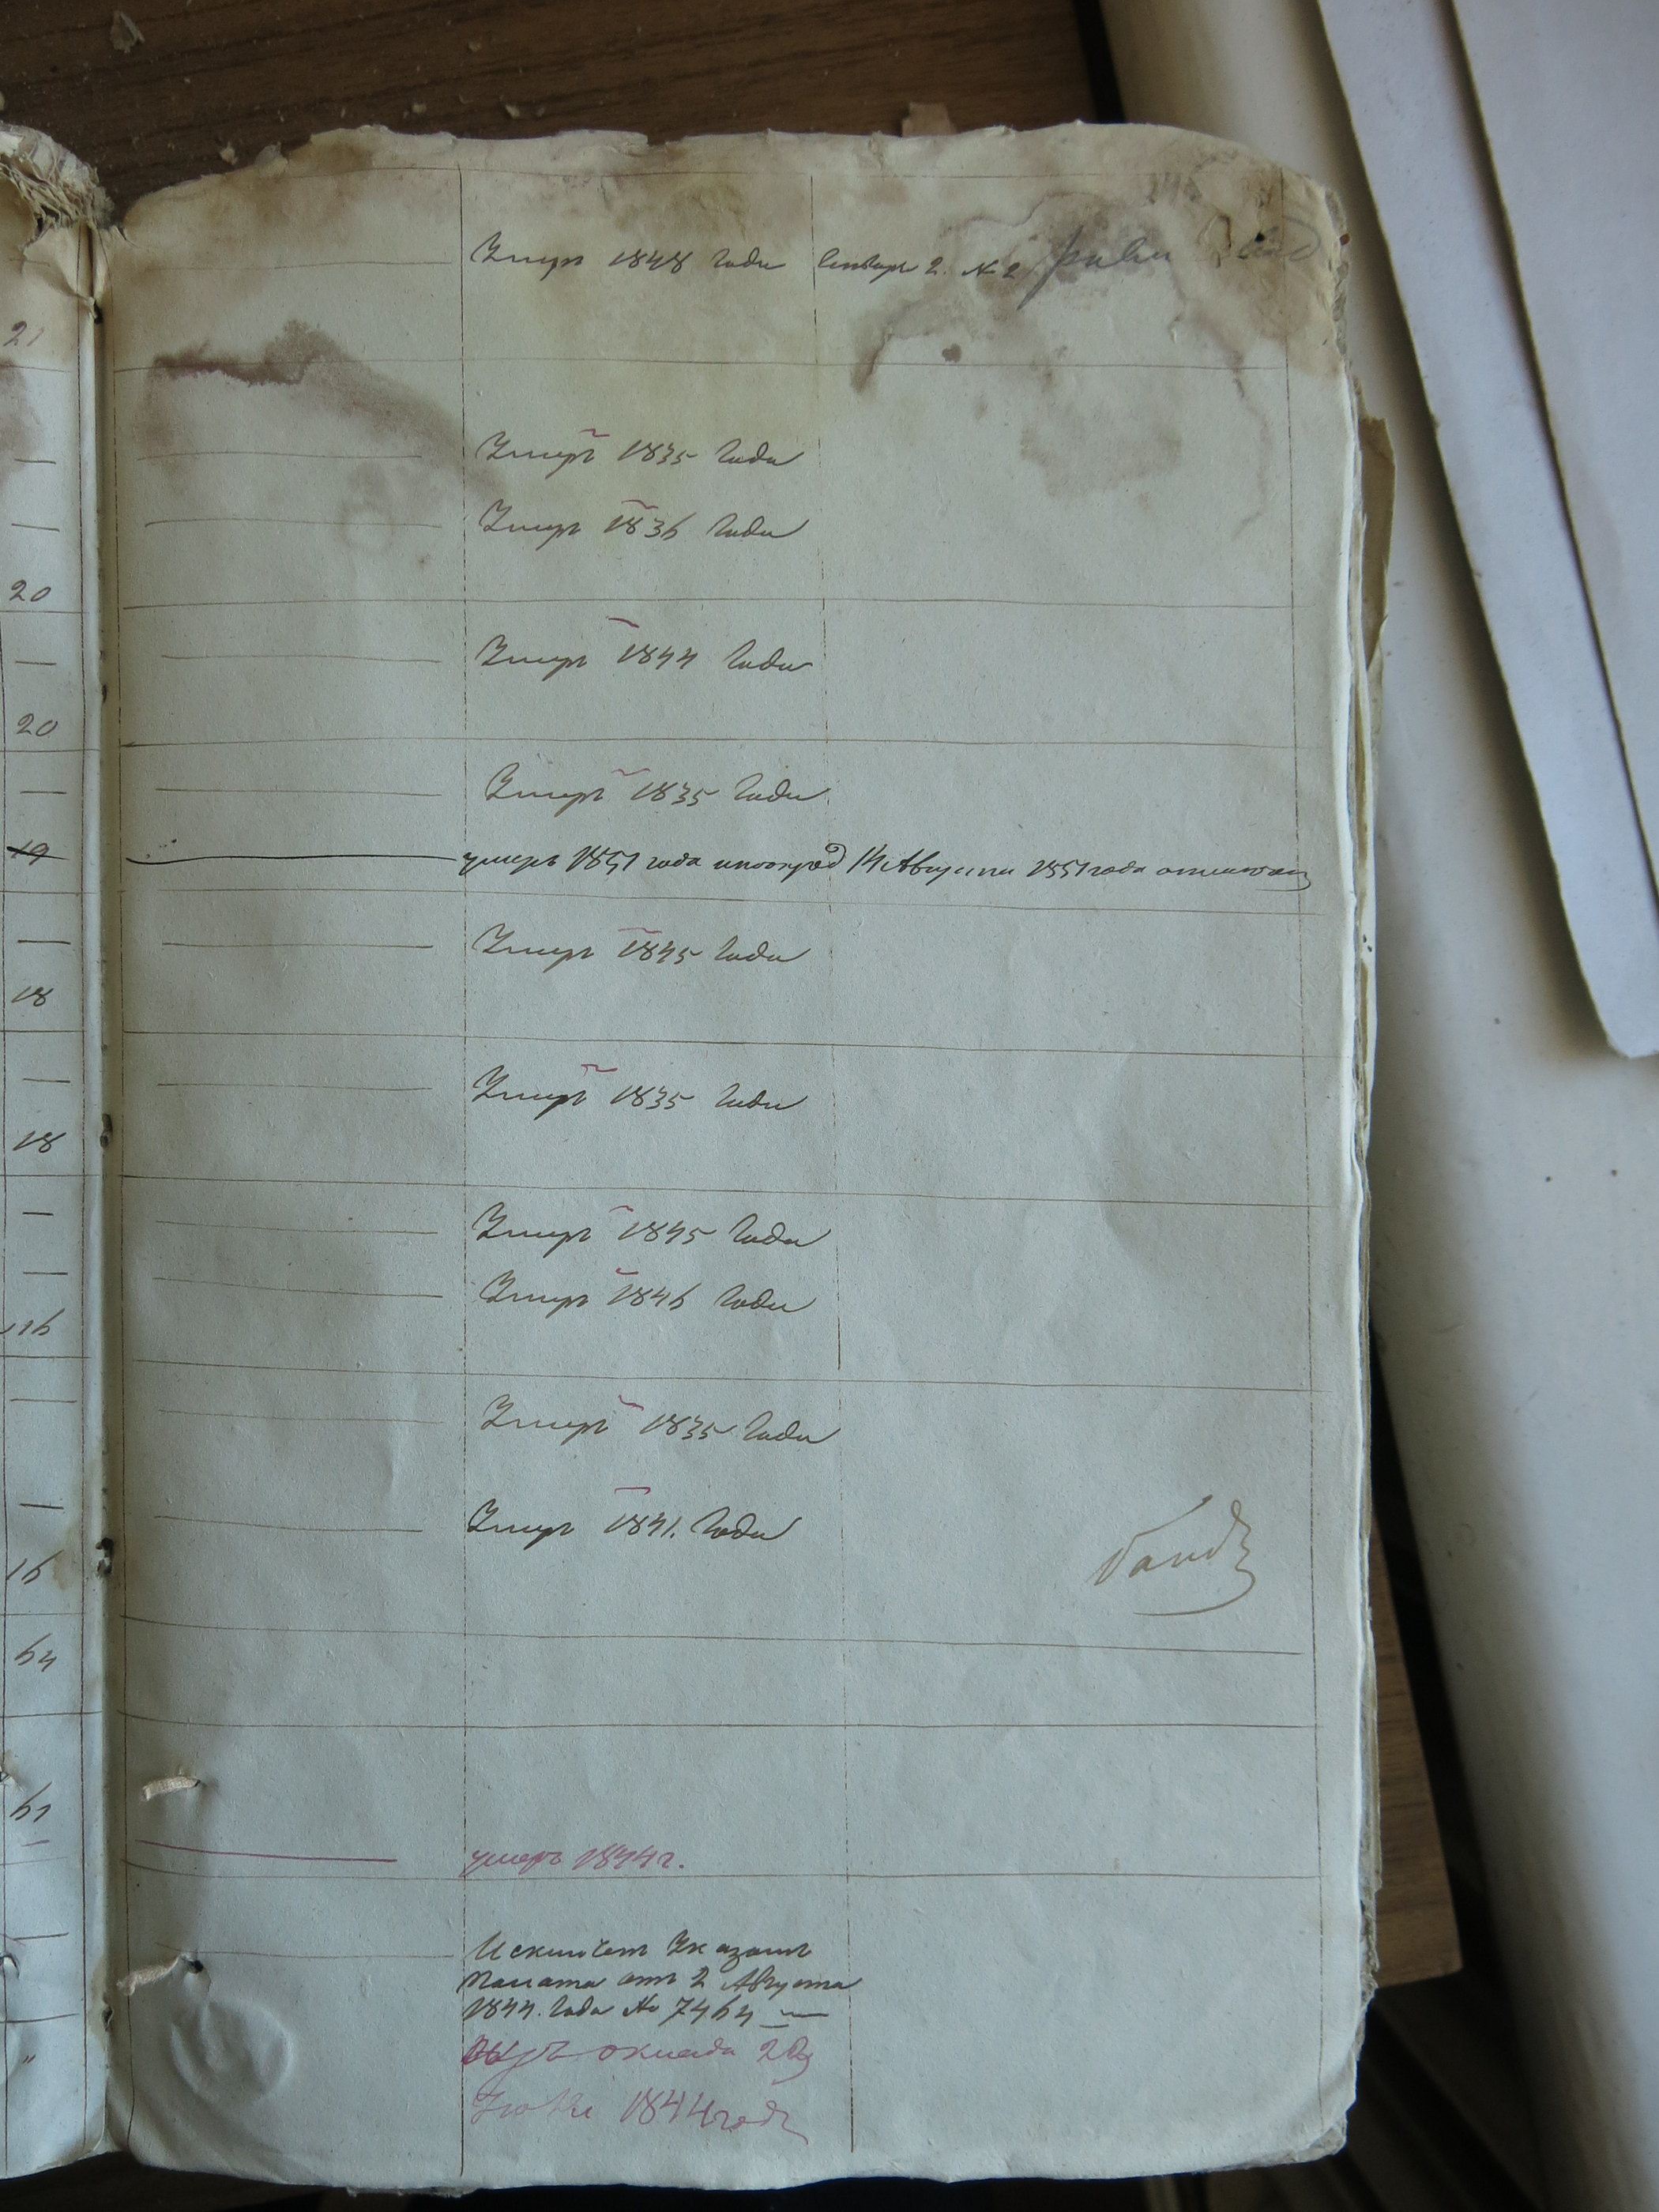 Умеръ 1848 Года Генваря 2. № 2
21
Умеръ 1835 Года
—
Умеръ 1836 Года
—
20
Умеръ 1844 Года
—
20
Умеръ 1835 Года
—
19 умеръ 1851 года 14 Августа 1851 года
Умеръ 1845 Года
—
18
Умеръ 1835 Года
—
18
Умеръ 1845 Года
—
Умеръ 1846 Года
—
16
Умеръ 1835 Года
—
Умеръ 1841. Года
—
16
64
61
умеръ 1844 г.
—
Исключенъ Указомъ
—
Палаты отъ 2 Августа
1844. Года № 7464
"
оклада 2й
1844 году